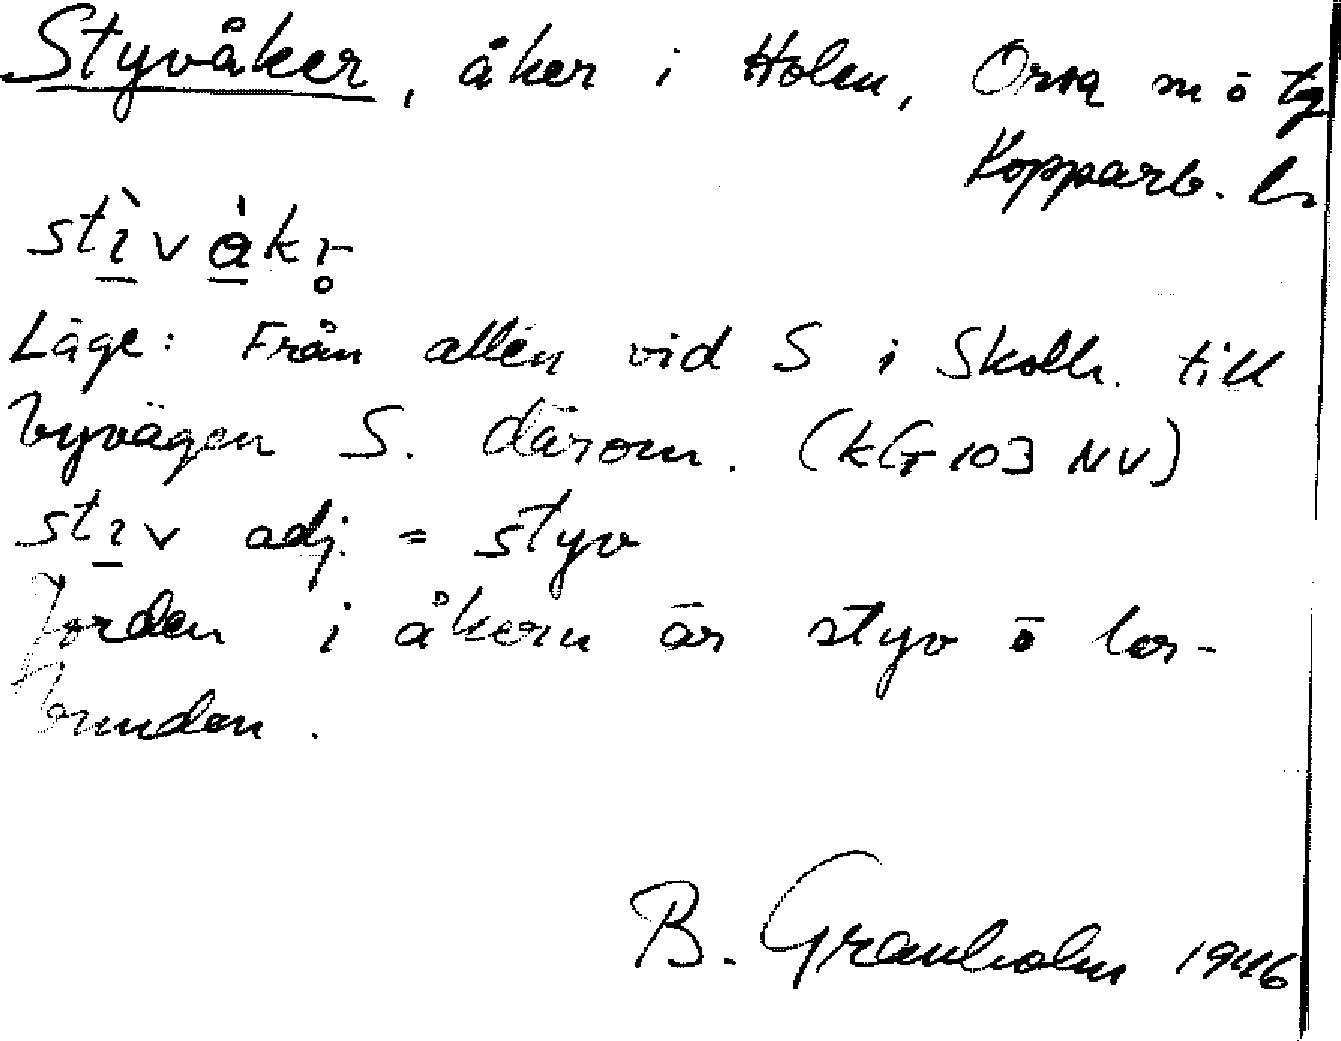 Styvåker, åker i Holen, Orsa sn ö tg
Kopparb. l.
stìvàkr̥
Läge: Från allén vid S i Skolh. till
byvägen S. därom. (kG 103 NV)
stiv adj. = styv
Jorden i åkern är styv o lor-
bunden.
B. Granholm 1946